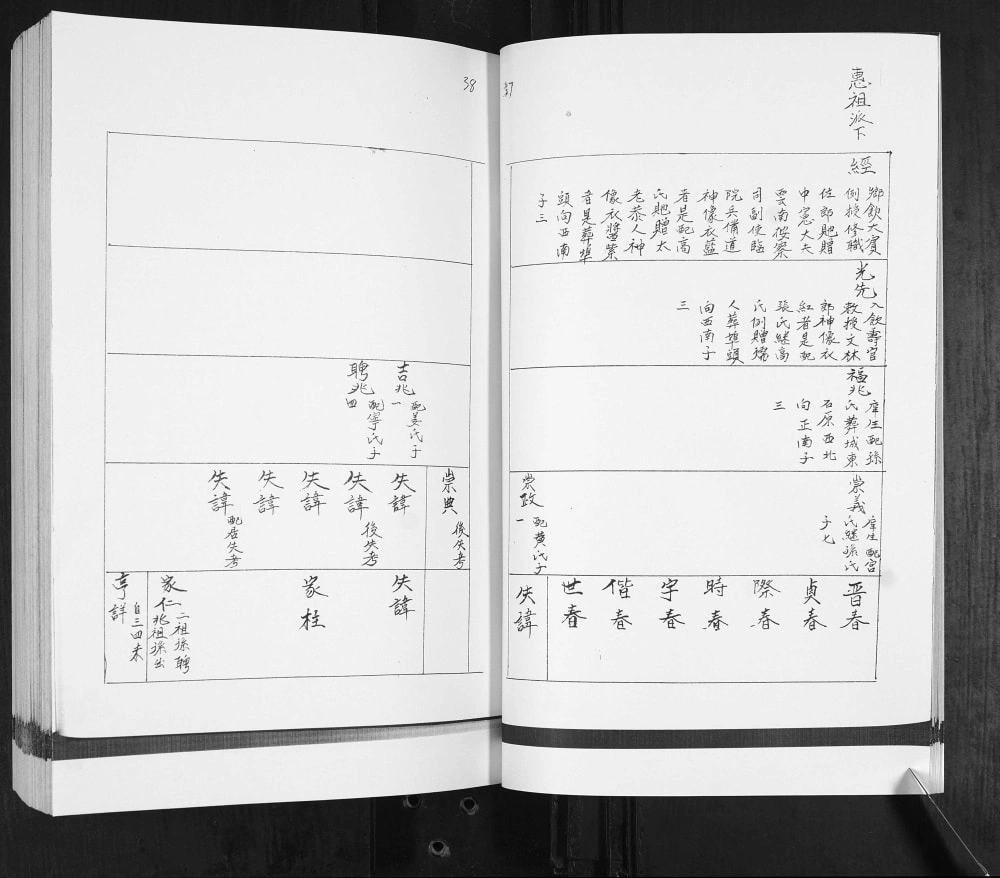 37
惠祖派下
經
鄉飲大賓
例授修職
佐郎貤贈
中憲大夫
雲南按察
司副使臨
院兵備道
神像衣藍
者是配高
氏貤贈太
老恭人神
像衣醬紫
者是葬埠
頭向西南
子三
光先
入飲壽官
敕授文林
郎神像衣
紅者是配
張氏繼高
氏例贈孺
人葬埠頭
向西南子
三
福兆
庠生配孫
氏葬城東
石原西北
向正南子
三
崇義
庠生配宮
氏繼孫氏
子七
崇政
配黄氏子
一
晋春
貞春
際春
時春
宇春
偕春
世春
失諱
38
吉兆
配姜氏子
一
聘兆
配寧氏子
四
崇典
後失考
失諱
失諱
後失考
失諱
失諱
失諱
配居失考
失諱
家柱
家仁
二祖孫聘
兆祖孫出
亨詳
自三四未